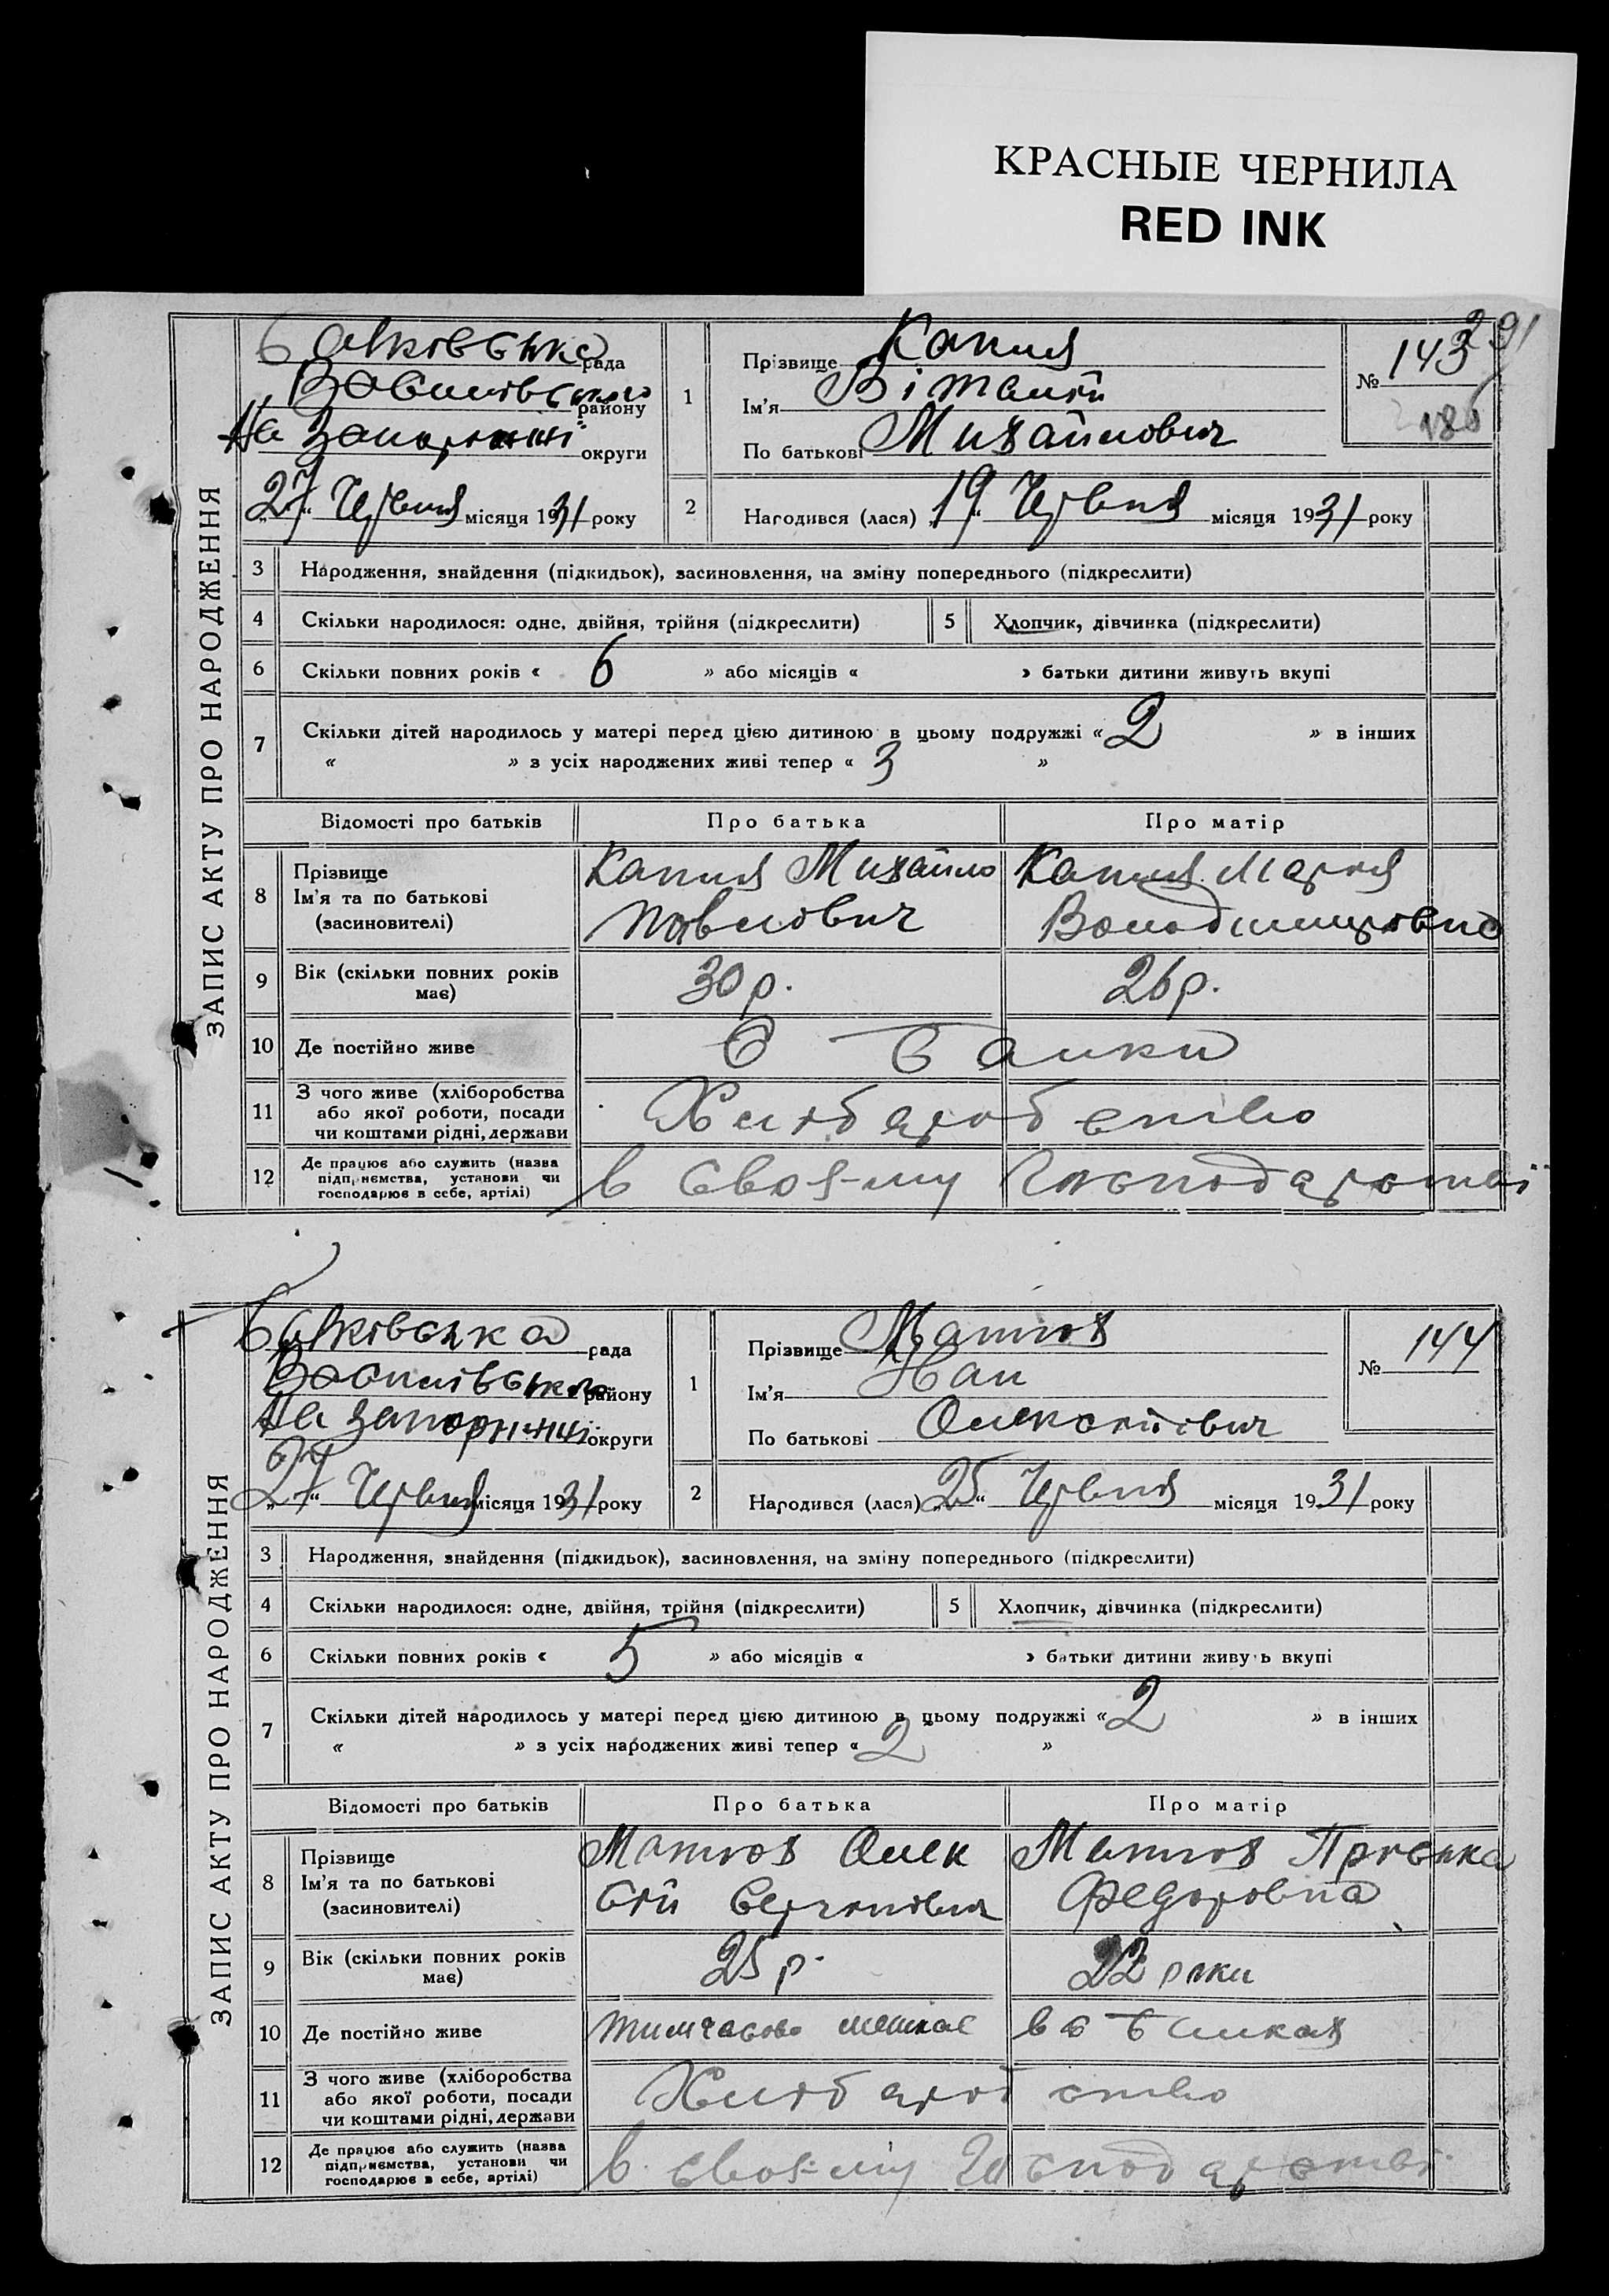 КРАСНЫЕ ЧЕРНИЛА
RED INK
ЗАПИС АКТУ ПРО НАРОДЖЕННЯ
Балковська рада
Василівського району
На Запоріжжі округи
„27“ Червня місяця 1931 року
1
Прізвище Капля
Ім'я Віталій
По батькові Михайлович
№ 143
291
186
2
Народився (лася) „19“ Червня місяця 1931 року
3 Народження, знайдення (підкидьок), засиновлення, на зміну попереднього (підкреслити)
4 Скільки народилося: одне, двійня, трійня (підкреслити) 5 Хлопчик, дівчинка (підкреслити)
6 Скільки повних років « 6 » або місяців « » батьки дитини живуть вкупі
7 Скільки дітей народилось у матері перед цією дитиною в цьому подружжі « 2 » в інших
« » з усіх народжених живі тепер « 3 »
Відомості про батьків Про батька Про матір
8 Прізвище Ім'я та по батькові (засиновителі)
Капля Михайло Павлович
Капля Марія Володимировна
9 Вік (скільки повних років має) 30 р. 26 р.
10 Де постійно живе С Балки
11 З чого живе (хліборобства або якої роботи, посади чи коштами рідні, держави
Хліборобство
12 Де працює або служить (назва підприємства, установи чи господарює в себе, артілі)
в своєму господарстві
ЗАПИС АКТУ ПРО НАРОДЖЕННЯ
Балковська рада
Василівського району
На Запоріжжі округи
„27“ Червня місяця 1931 року
1
Прізвище Матюх
Ім'я Іван
По батькові Олексійович
№ 144
2
Народився (лася) „25“ Червня місяця 1931 року
3 Народження, знайдення (підкидьок), засиновлення, на зміну попереднього (підкреслити)
4 Скільки народилося: одне, двійня, трійня (підкреслити) 5 Хлопчик, дівчинка (підкреслити)
6 Скільки повних років « 5 » або місяців « » батьки дитини живуть вкупі
7 Скільки дітей народилось у матері перед цією дитиною в цьому подружжі « 2 » в інших
« » з усіх народжених живі тепер « 2 »
Відомості про батьків Про батька Про матір
8 Прізвище Ім'я та по батькові (засиновителі)
Матюх Олексій
Матюх Приська Федоровна
9 Вік (скільки повних років має) 25 р. 22 роки
10 Де постійно живе тимчасово мешкає в с Балках
11 З чого живе (хліборобства або якої роботи, посади чи коштами рідні, держави
Хліборобство
12 Де працює або служить (назва підприємства, установи чи господарює в себе, артілі)
в своєму господарстві